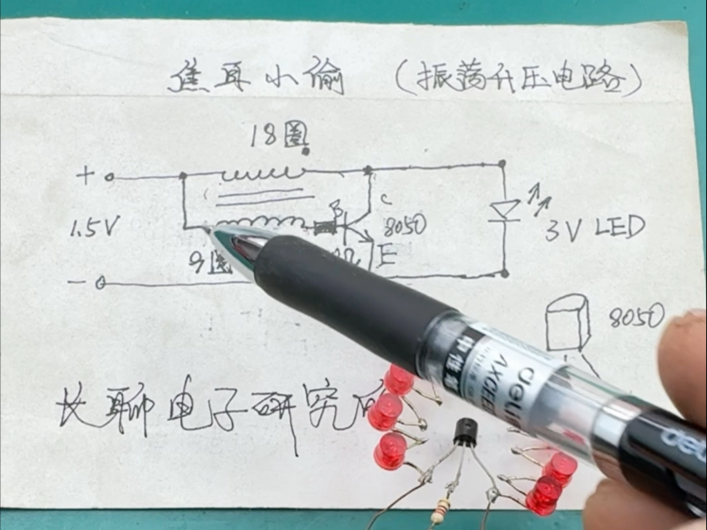 焦耳小偷 (振荡升压电路)
18圈
+
1.5V
B
C
8050
E
3V LED
9圈
Ω
-
8050
长聊电子研究
deli
AXCEE